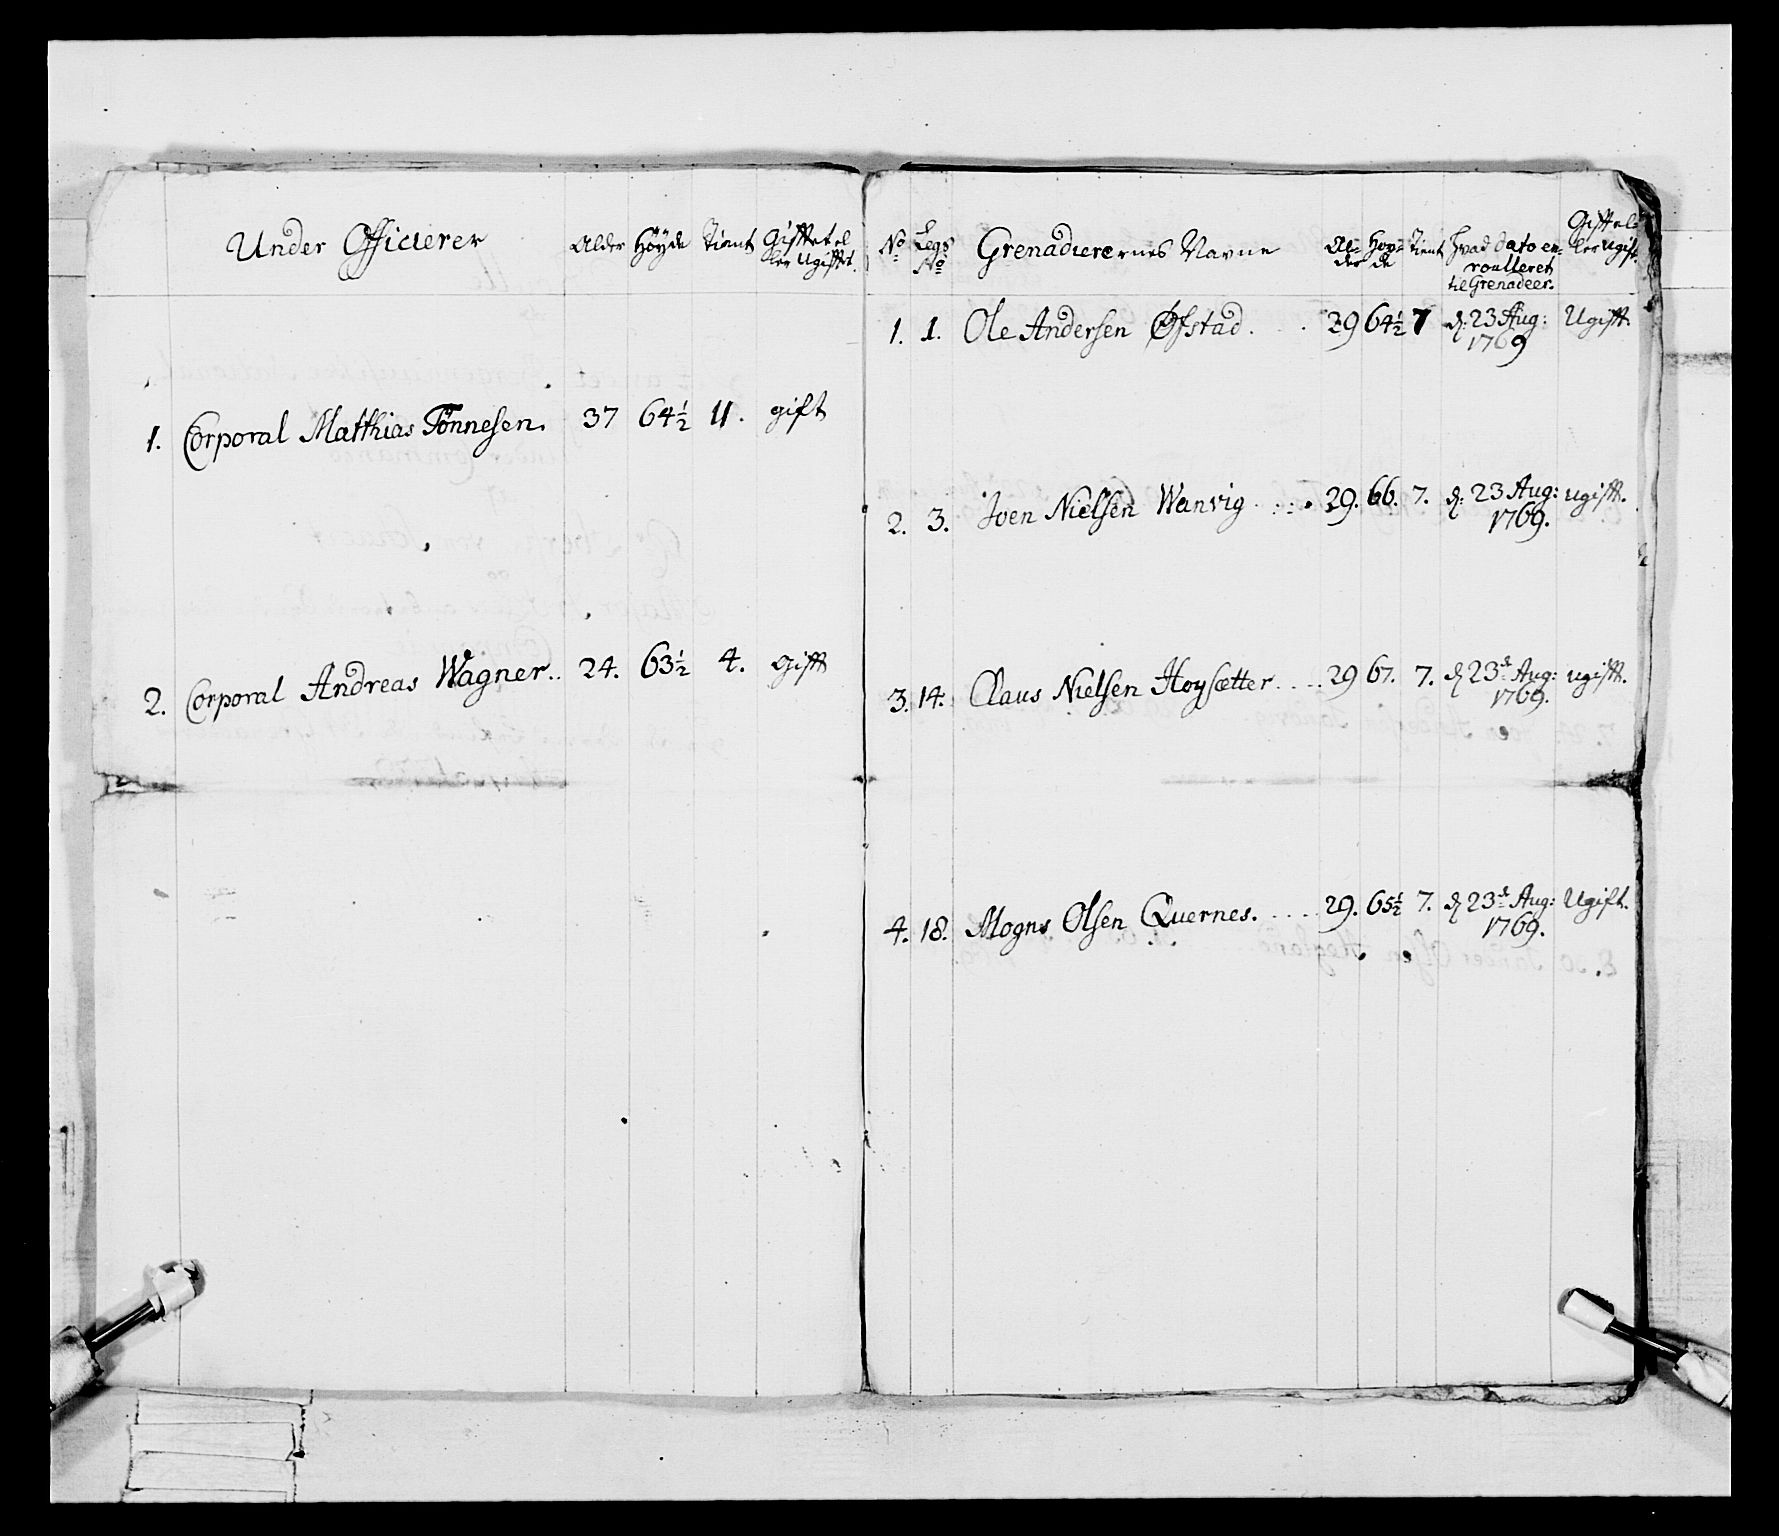 Under Officierer Alder Höyde Tient Gifftet el
ler Ugifftet.
1. Corporal Matthias Tönnesen. 37 64½ 11. gift
2. Corporal Andreas Wagner.. 24. 63½ 4. gifft
No Legs No Grenadierernes Navne Al= der Høy= de Tient hvad dato en=
roulleret
til Grenadeer. Gifft el=
ler ugift.
1. 1. Ole Andersen Øfstad. . . 29 64½ 7 d: 23 Aug: Ugifft
1769
2. 3. Joen Nielsen Wanvig . . . . 29. 66. 7. d: 23 Aug: ugifft.
1769.
3. 14. Claus Nielsen Hoysætter . . . . 29 67. 7. d 23de Aug: ugifft.
1769.
4. 18. Mogns Olsen Quernes. . . . . 29. 65½ 7. d 23de Aug: Ugift.
1769.